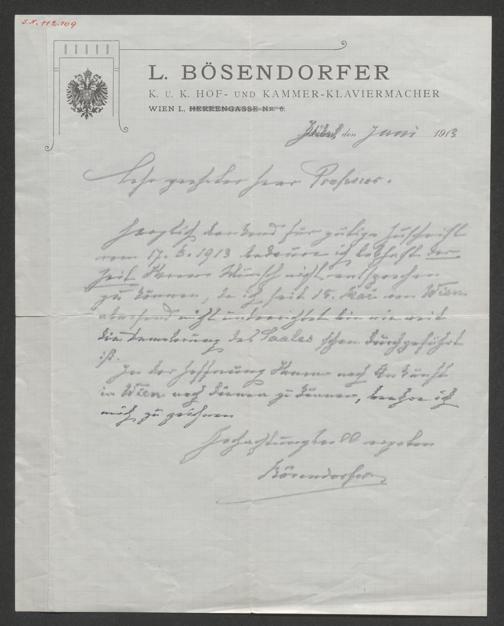 I.N. 112.109
L. BÖSENDORFER
K. U. K. HOF- UND KAMMER-KLAVIERMACHER
WIEN I., HERRENGASSE Nr. 6.
den Juni 1913
Sehr geehrter Herr Professor.
Herzlich dankend für gütige Zuschrift
vom 17. 6. 1913 bedaure ich lebhaft der
Zeit Ihrem Wunsch nicht entsprechen
zu können, da ich seit 15. Mai von Wien
abwesend nicht unterrichtet bin wie weit
die Demolierung des Saales schon durchgeführt
ist.
In der Hoffnung Ihnen nach Ankunft
in Wien noch dienen zu können, beehre ich
mich zu zeichnen
Hochachtungsvoll ergeben
Bösendorfer